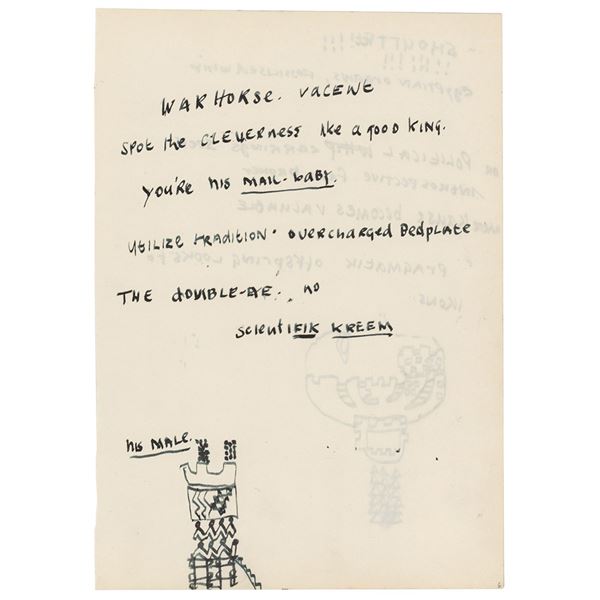 WARHORSE. VACENT
SPOT THE CLEVERNESS like a good KING.
you're his MAIL-BABY.
UTILIZE TRADITION. OVERCHARGED BEDPLATE
THE DOUBLE-BE. no
scientIFIK KREEM
his MALE.